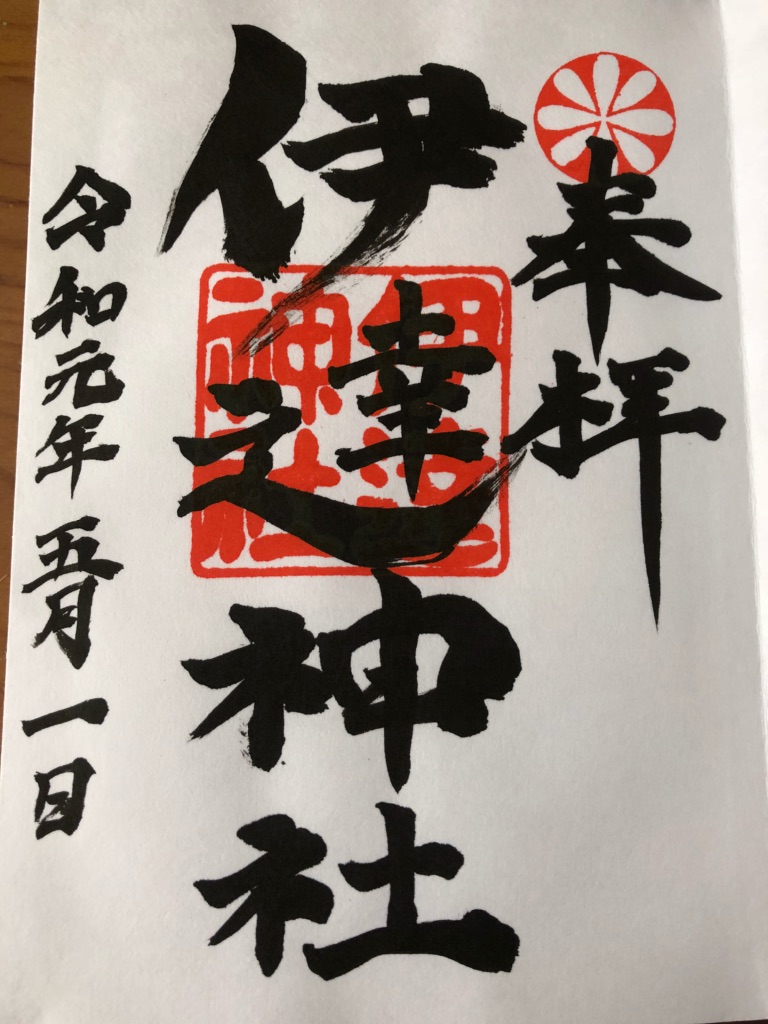 奉拝
伊達神社
伊達神社
令和元年五月一日